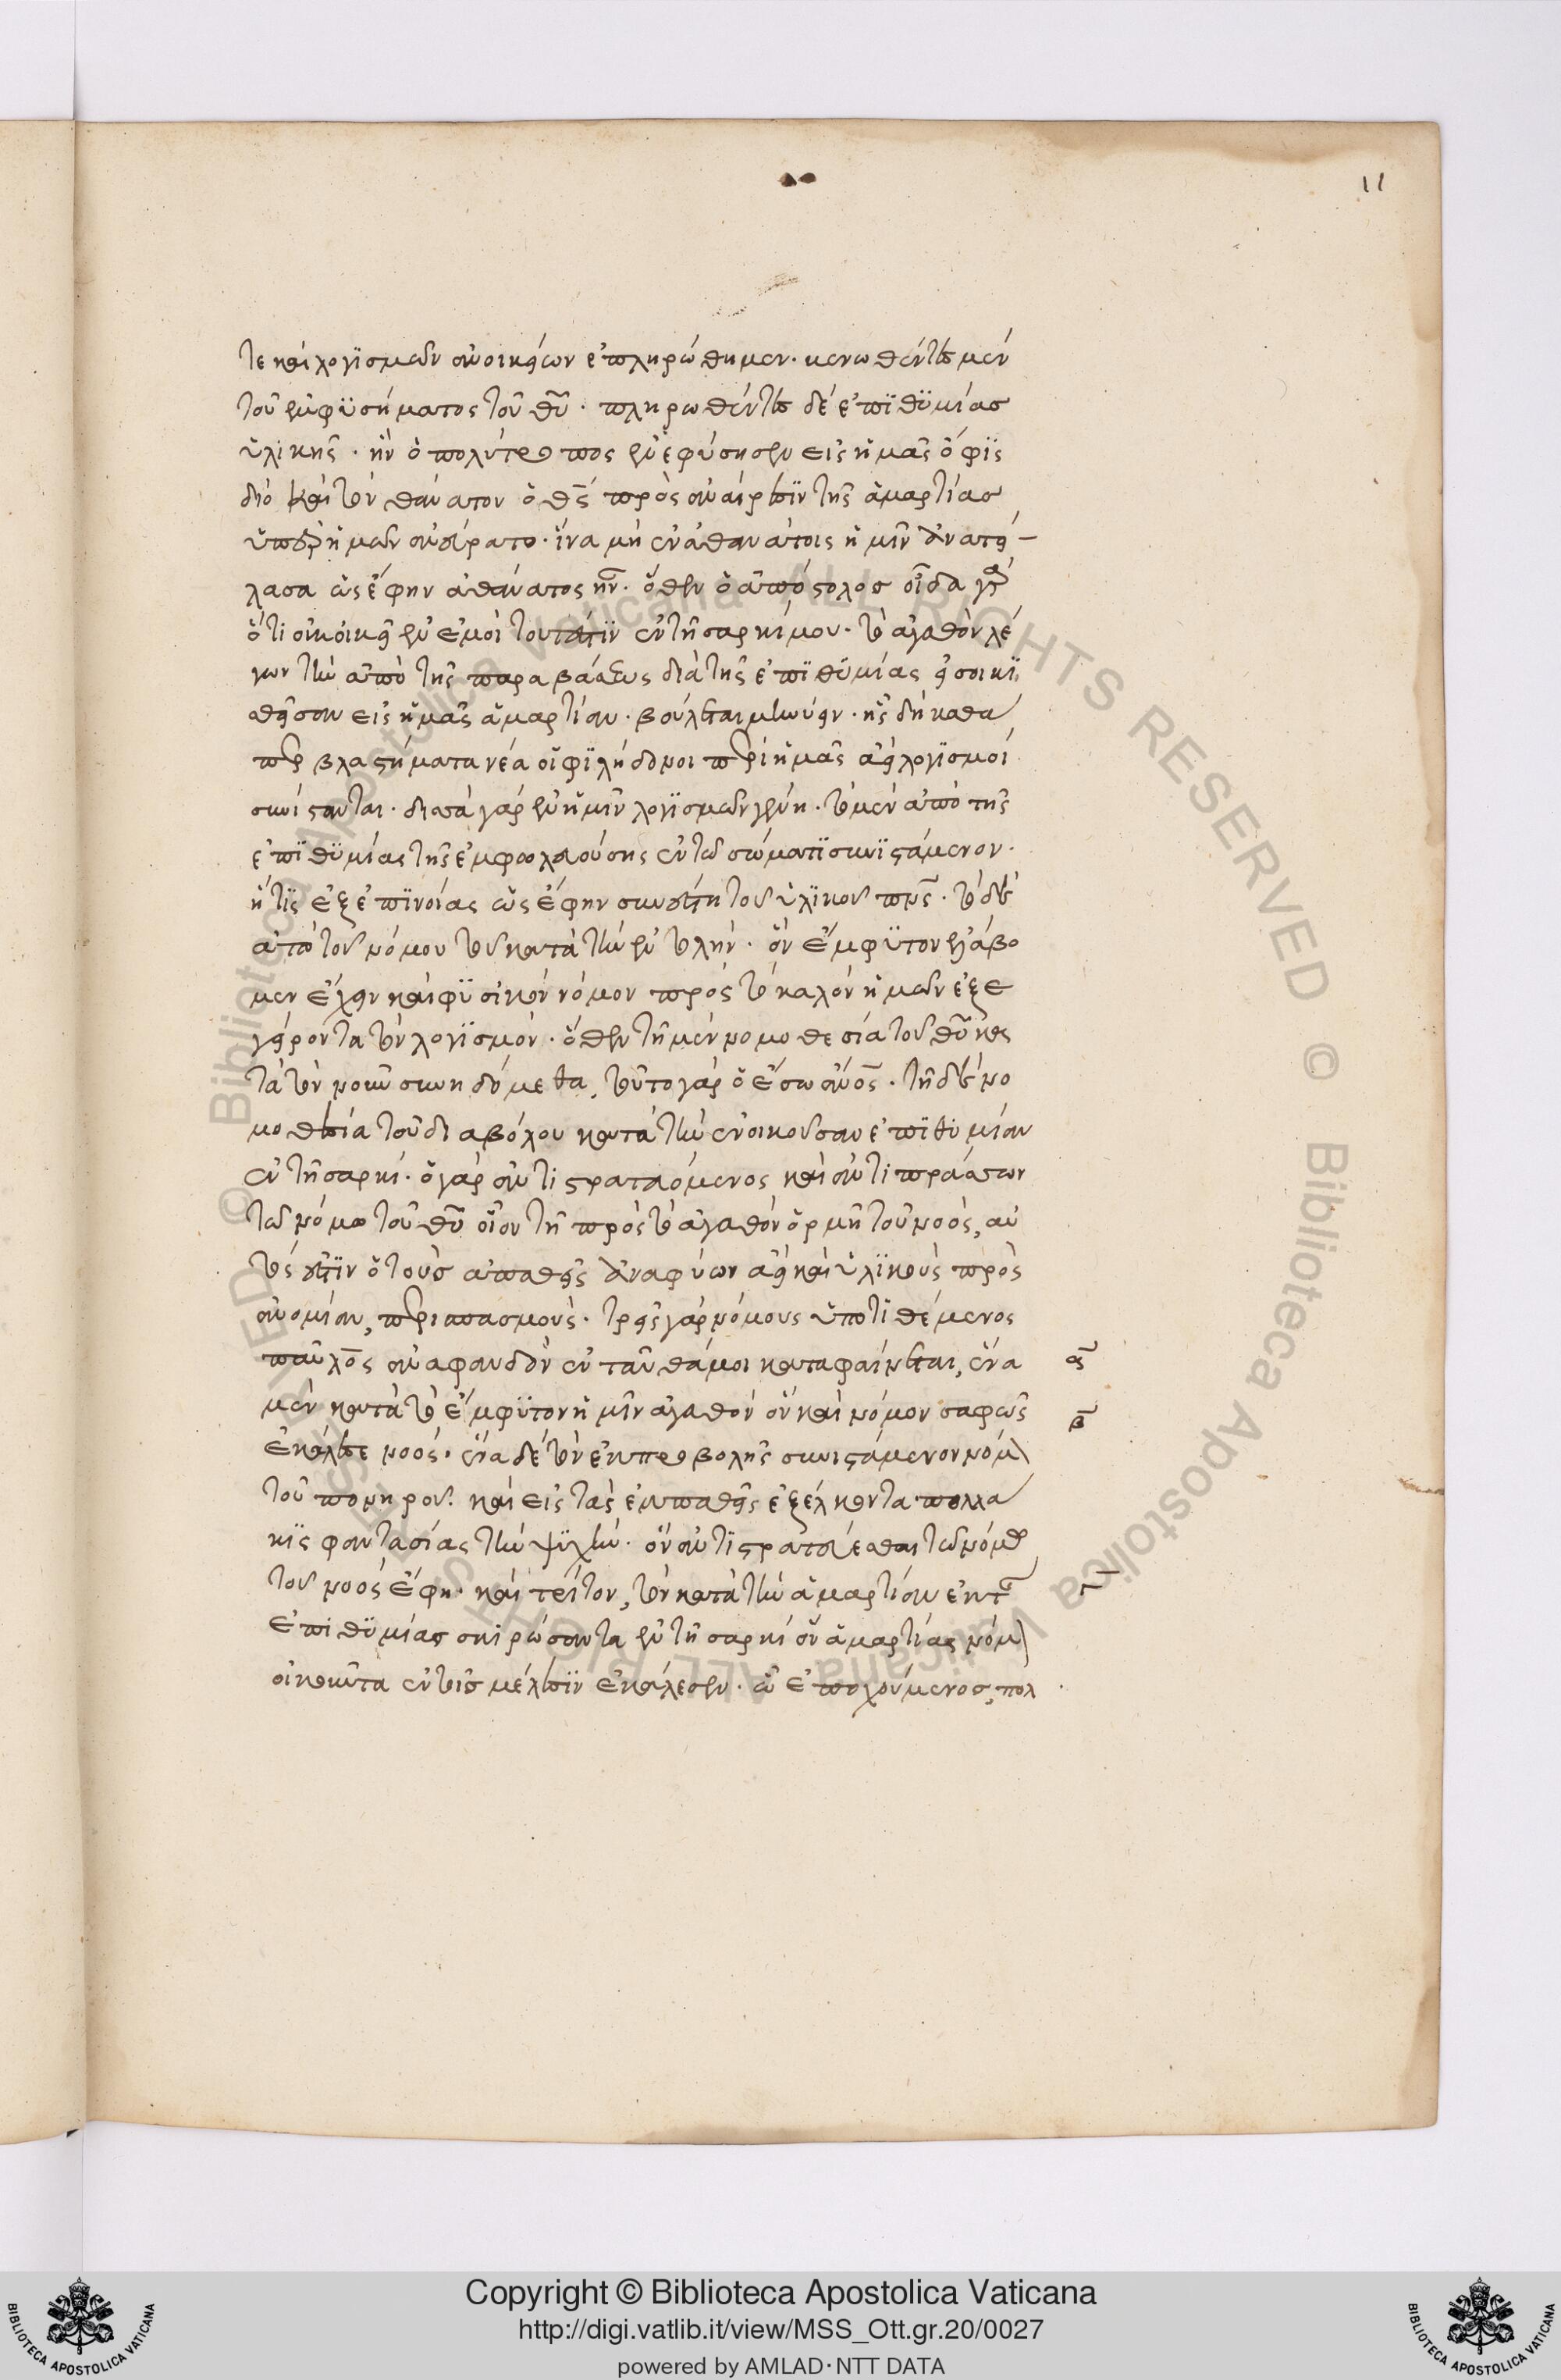 11
τε καὶ λογϊσμῶν ἀνοικείων ἐπληρώθημεν· κενωθέντες μὲν
τοῦ ἐμφϋσήματος τοῦ θῦ· πληρωθέντες δὲ ἐπϊθϋμίας
ὑλικῆς· ἣν ὁ πολύτροπος ἐνεφύσησεν εἰς ἡμᾶς ὄφϊς
διὸ καὶ τὸν θάνατον ὁ θς πρὸς ἀναίρεσϊν τῆς ἁμαρτίας
ὑπὲρ ἡμῶν ἀνεύρατο· ἵνα μὴ ἐν ἀθανάτοις ἡμῖν ἀνατεί-
λασα ὡς ἔφην ἀθάνατος ἦν· ὅθεν ὁ ἀπόστολος οἶδα γὰρ
ὅτι οὐκ οἰκεῖ ἐν ἐμοὶ τουτέστϊν ἐν τῆ σαρκί μου· τὸ ἀγαθὸν λέ
γων τὴν ἀπὸ τῆς παραβάσεως διὰ τῆς ἐπϊθϋμίας εἰσοικϊ
σθεῖσαν εἰς ἡμᾶς ἁμαρτίαν· βούλεται μηνύειν· ἧς δὴ καθά
περ βλαστήματα νέα οἱ φϊλήδονοι περὶ ἡμᾶς ἀεὶ λογϊσμοὶ
συνίστανται· δισσὰ γὰρ ἐν ἡμῖν λογϊσμῶν γένη· τὸ μὲν ἀπὸ τῆς
ἐπϊθϋμίας τῆς ἐμφωλευούσης ἐν τῶ σώματϊ συνϊστάμενον·
ἥτϊς ἐξ ἐπϊνοίας ὡς ἔφην συνέστη τοῦ ὑλϊκοῦ πνς· τὸ δὲ
ἀπὸ τοῦ νόμου τοῦ κατὰ τὴν ἐντολήν· ὃν ἔμφϋτον ἐλάβο
μεν ἔχειν καὶ φϋσικὸν νόμον πρὸς τὸ καλὸν ἡμῶν ἐξε
γείροντα τὸν λογϊσμόν· ὅθεν τῆ μὲν νομοθεσία τοῦ θῦ κα
τὰ τὸν νοῦν συνηδόμεθα, τοῦτο γὰρ ὁ ἔσω ἀνος· τῆ δὲ νο
μοθεσία τοῦ διαβόλου κατὰ τὴν ἐνοικοῦσαν ἐπϊθυμίαν
ἐν τῆ σαρκί· ὁ γὰρ ἀντιστρατευόμενος καὶ ἀντιπράσσων
τῶ νόμω τοῦ θῦ οἷον τῆ πρὸς τὸ ἀγαθὸν ὁρμῆ τοῦ νοός, αὐ
τός ἐστϊν ὁ τοὺς ἀπαθεῖς ἀναφύων ἀεὶ καὶ ὑλϊκοὺς πρὸς
ἀνομίαν, περισπασμούς· τρεῖς γὰρ νόμους ὑποτιθέμενος
παῦλος ἀναφανδὸν ἐνταῦθά μοι καταφαίνεται, ἕνα
μὲν κατὰ τὸ ἔμφϋτον ἡμῖν ἀγαθὸν ὃν καὶ νόμον σαφῶς
ἐκάλεσε νοός· ἕνα δὲ τὸν ἐκ προσβολῆς συνιστάμενον νόμ
τοῦ πονηροῦ. καὶ εἰς τὰς ἐμπαθεῖς ἐξέλκοντα πολλά
κϊς φαντασίας τὴν ψϋχήν· ὃν ἀντϊστρατεύεσθαι τῶ νόμω
τοῦ νοὸς ἔφη· καὶ τρίτον, τὸν κατὰ τὴν ἁμαρτίαν ἐκ τῆς
ἐπιθϋμίας σκιρώσαντα ἐν τῆ σαρκὶ ὃν ἁμαρτίας νόμ
οἰκοῦντα ἐν τοῖς μέλεσϊν ἐκάλεσεν· ᾧ ἐποχούμενος, πολ
α
β
γ
Copyright © Biblioteca Apostolica Vaticana
http://digi.vatlib.it/view/MSS_Ott.gr.20/0027
powered by AMLAD·NTT DATA
BIBLIOTECA APOSTOLICA VATICANA
BIBLIOTECA APOSTOLICA VATICANA
© Biblioteca Apostolica Vaticana ALL RIGHTS RESERVED © Biblioteca Apostolica Vaticana ALL RIGHTS RESERVED